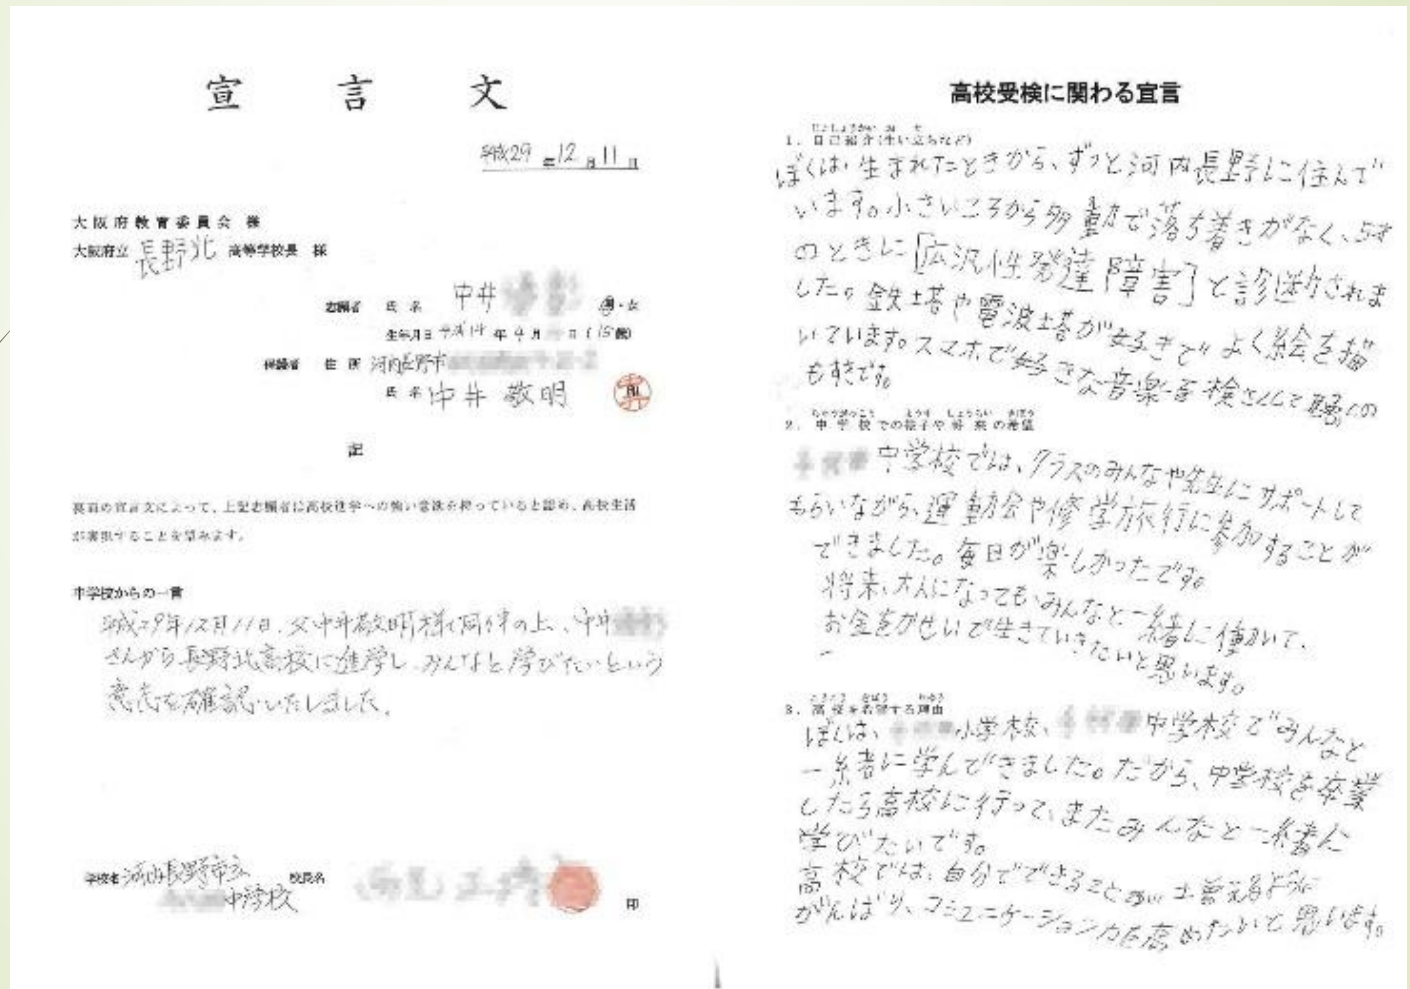 宣言文
平成29年12月11日
大阪府教育委員会 様
大阪府立 長野北 高等学校長 様
志願者 氏名 中井 男・女
生年月日 平成14年4月 日(15歳)
保護者 住所 河内長野市
氏名 中井 敬明 印
記
裏面の宣言文によって、上記志願者は高校進学への強い意欲を持っていると認め、高校生活
が実現することを望みます。
中学校からの一言
平成29年12月11日、父中井敬明様で同伴の上、中井
さんから長野北高校に進学し、みんなと学びたいという
意志を確認いたしました。
学校名 河内長野市立 校長名
中学校 印
高校受検に関わる宣言
じこしょうかい お た
1.自己紹介(生い立ちなど)
ぼくは、生まれたときから、ずっと河内長野に住んで
います。小さいころから多動で落ち着きがなく、5才
のときに「広汎性発達障害」と診断されま
した。鉄塔や電波塔が好きで よく絵を描
いています。スマホで好きな音楽を検さくして聴くの
もすきです。
ちゅうがっこう ようす しょうらい きぼう
2.中学校での様子や将来の希望
中学校では、クラスのみんなや先生にサポートして
もらいながら、運動会や修学旅行に参加することが
できました。毎日が楽しかったです。
将来、大人になっても、みんなと一緒に働いて、
お金をかせいで生きていきたいと思います。
こうこう きぼう りゆう
3.高校を希望する理由
ぼくは、 小学校、 中学校でみんなと
一緒に学んできました。だから、中学校を卒業
したら高校に行って、またみんなと一緒に
学びたいです。
高校では、自分でできることが増えるように
がんばり、コミュニケーション力を高めたいと思います。